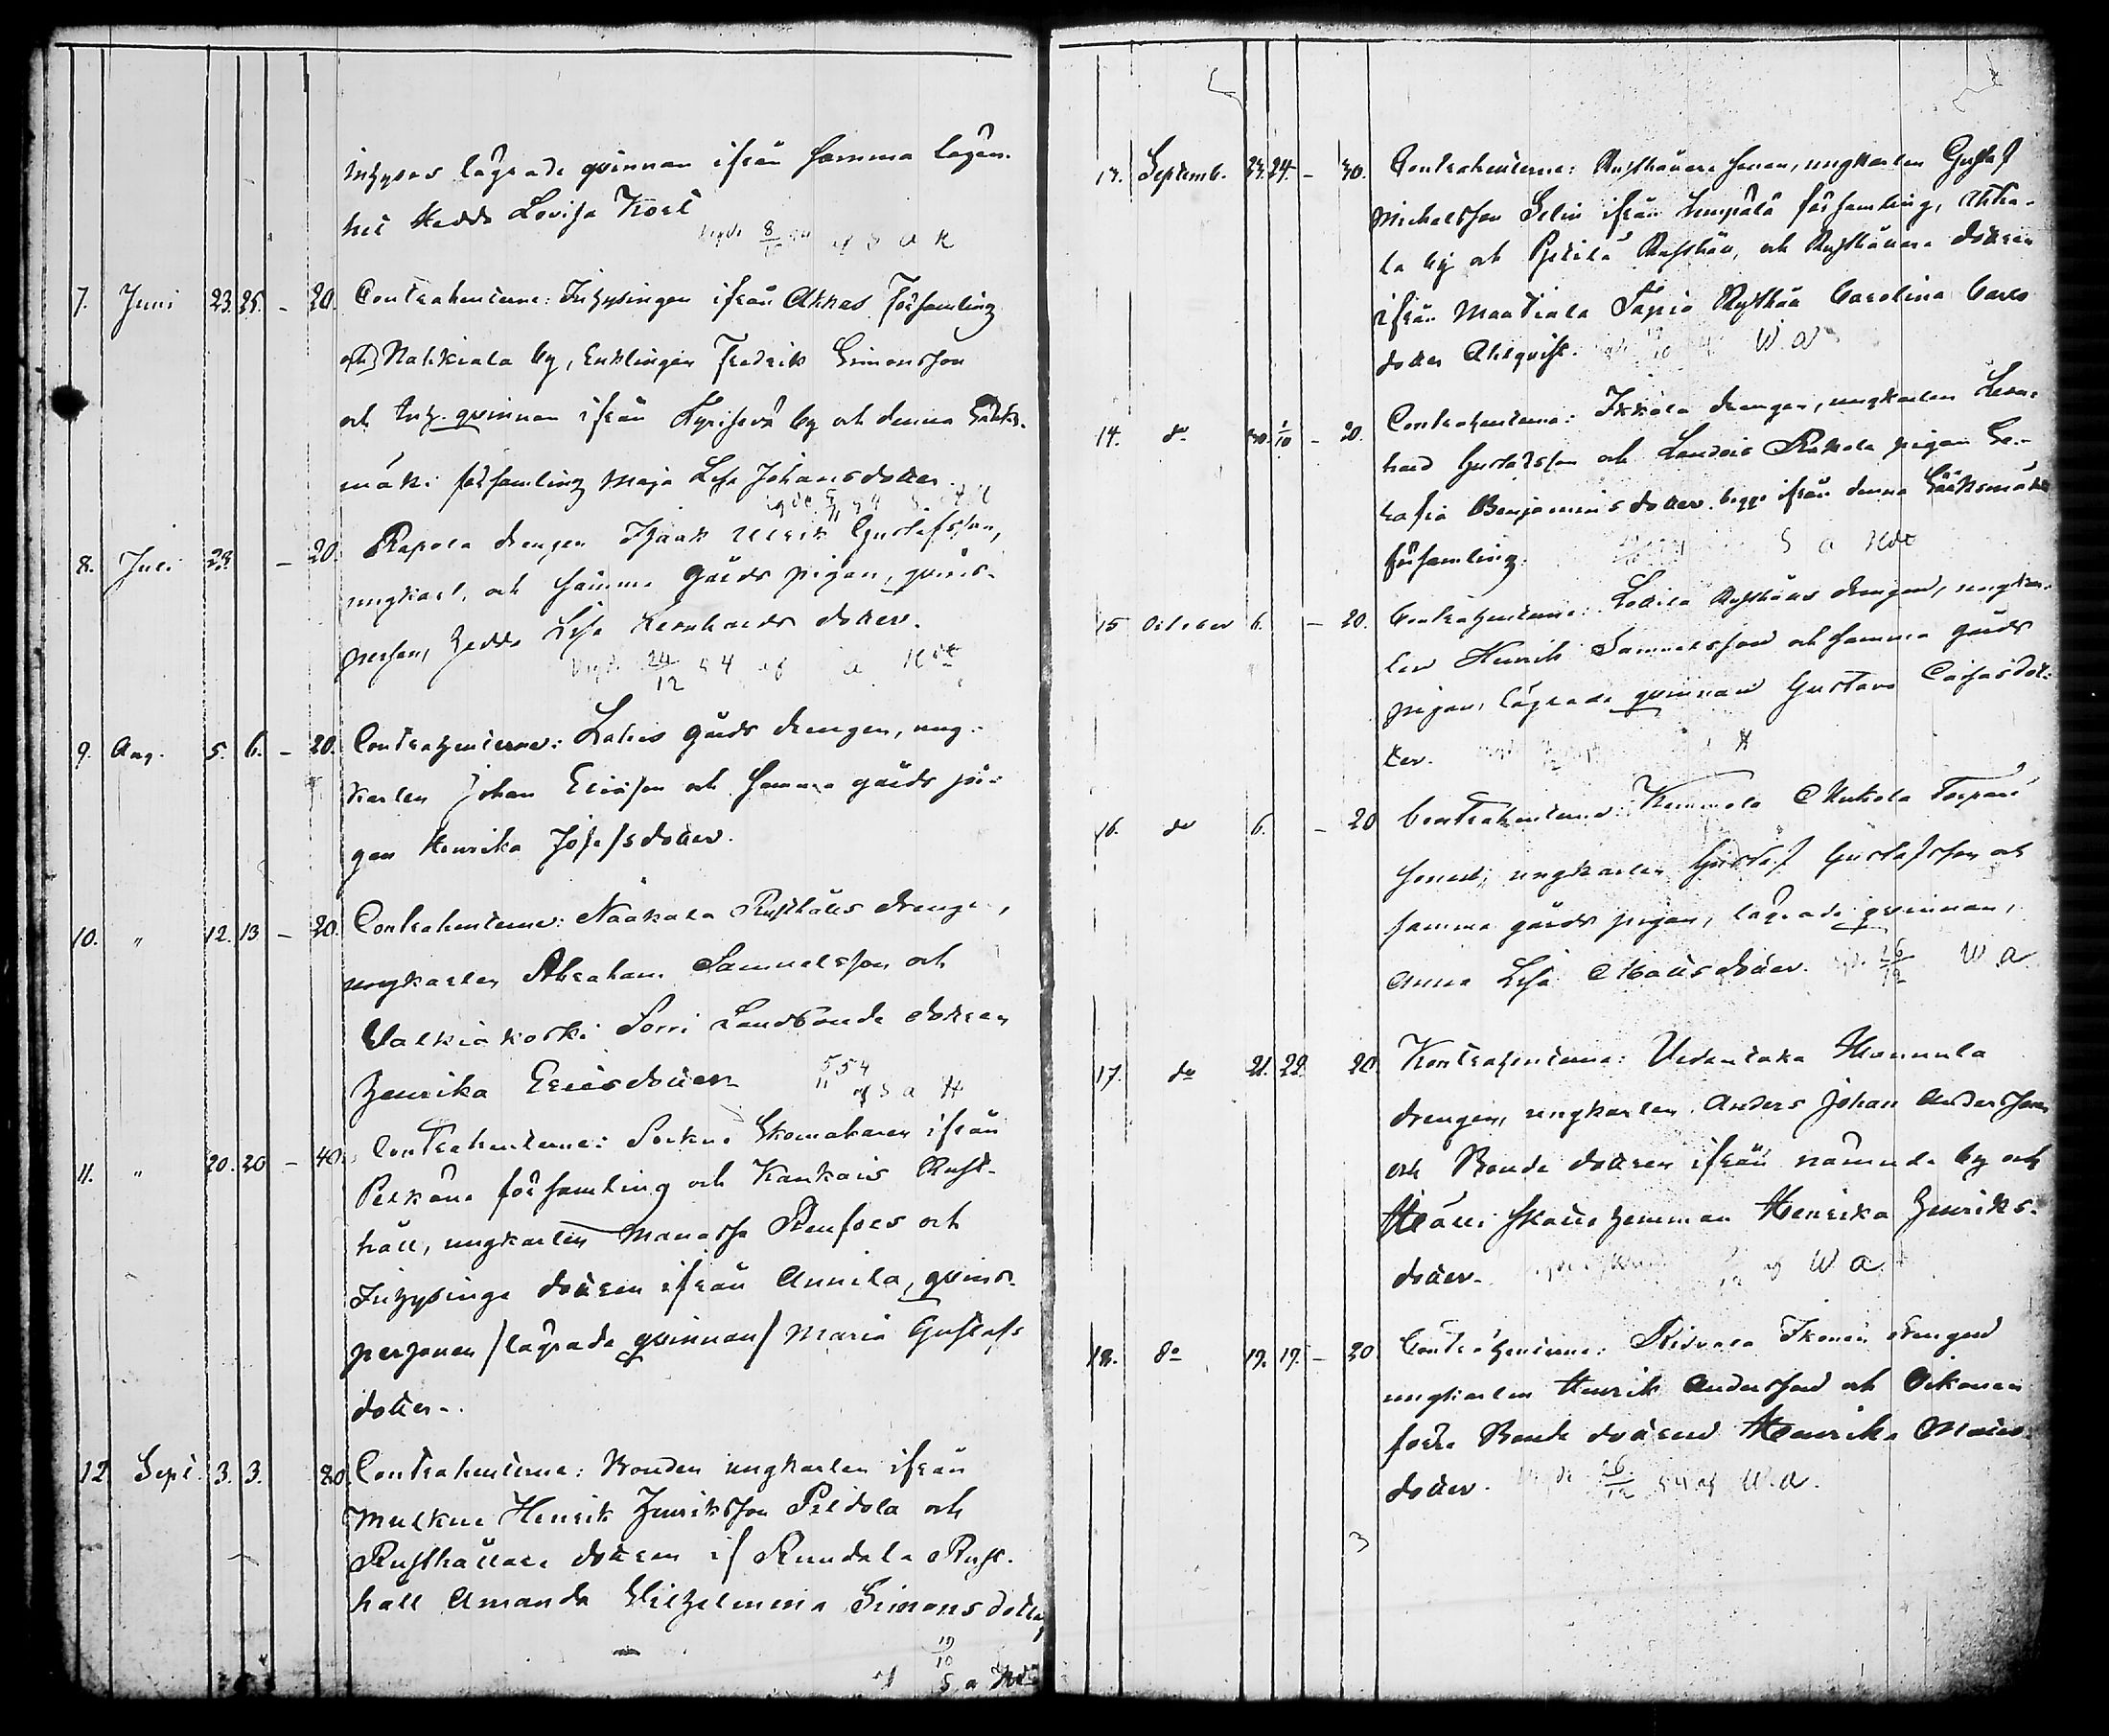 Inhyses lägrade qvinnan ifrån samma lägen-
het Hedda Lovisa Kort
Vigde 8/10 54 af S A H
7. Juni 23. 25. – 20. Contrahenterne: Inhysingen ifrån Akkas Församling
och Nahkiala by, Enklingen Fredrik Simonsson
och Inh. qvinnan ifrån Kyrisevä by och denna Sääks-
mäki församling Maja Lisa Johansdotter
8. Juli 23. – 20. Rapola drengen Isaak Ulrik Gustafsson,
ungkarl, och samma Gårds pigan, qvins-
person, Hedda Lisa Leonhards dotter.
Vigde 24/12 54 af A
9. Aug. 5. 6. – 20. Contrahenterne: gårds drengen, ung-
karlen Johan Ericsson och samma gårds pi-
gan Henrika Josefsdotter.
10. " 12. 13 – 20. Contrahenterne: Naakala Rusthålls drengen,
ungkarlen Abraham Samuelsson och
Valkiakoski Sorri Landbonde dottren
Henrika Ericsdotter
5/11 54 af S A H
11. " 20. 20 – 40. Contrahenterne: Sockne Skomakaren ifrån
Pelkäne församling och Kankais Rust-
håll, ungkarlen Manasse Renfors och
Inhysinge dottren ifrån Annila, qvins-
personen /lägrade qvinnan/ Maria Gustafs
dotter.
12 Sept. 3. 3. 80 Contrahenterne: Bonden ungkarlen ifrån
Mulkue Henrik Henriksson Peldola och
Rusthållare dottren if Rundala Rust-
håll Amanda Wilhelmina Simonsdotter
19/10
af S A
13. Septemb. 23. 24. – 30. Contrahenterne: Rusthållare sonen, ungkarlen Gustaf
Michelsson Selin ifrån Lempälä församling,
la by och Rusthåll, och Rusthållare dottren
ifrån Maatiala Tapio Rusthåll Carolina Carls
dotter Ahlqvist. W. A
14. do 30. 1/10 – 20. Contrahenterne: Ikkala drengen, ungkarlen Leon-
hard Gustafsson och pigan Se-
rafia Benjaminsdotter begge ifrån denna Sääksmäki
församling. S A
15 October 6. – 20. Contrahenterne: Rusthålls drengen, ungkar-
len Henrik Samuelsson och samma gårds
pigan, lägrade qvinnan Gustava Caisasdot-
ter.
16. do 6. – 20 Contrahenterne: Kemmola Torpare
sonen, ungkarlen Gustaf Gustafsson och
samma gårds pigan, lägrade qvinnan,
Anna Lisa Mattsdotter. 26/12 W A
17. do 21. 22. 20. Kontrahenterne: Uedentaka Hannula
drengen, ungkarlen Anders Johan Andersson
och Bonde dottren ifrån nämnde by och
skatte hemman Henrika Henriks-
dotter. af W A
18. do 19. 19. – 30. Contrahenterne: Ridvala Ikonen drengen
ungkarlen Henrik Andersson och
förre Bonde dottren Henrika Matts
dotter. Vigde 26/12 54 af W. A.